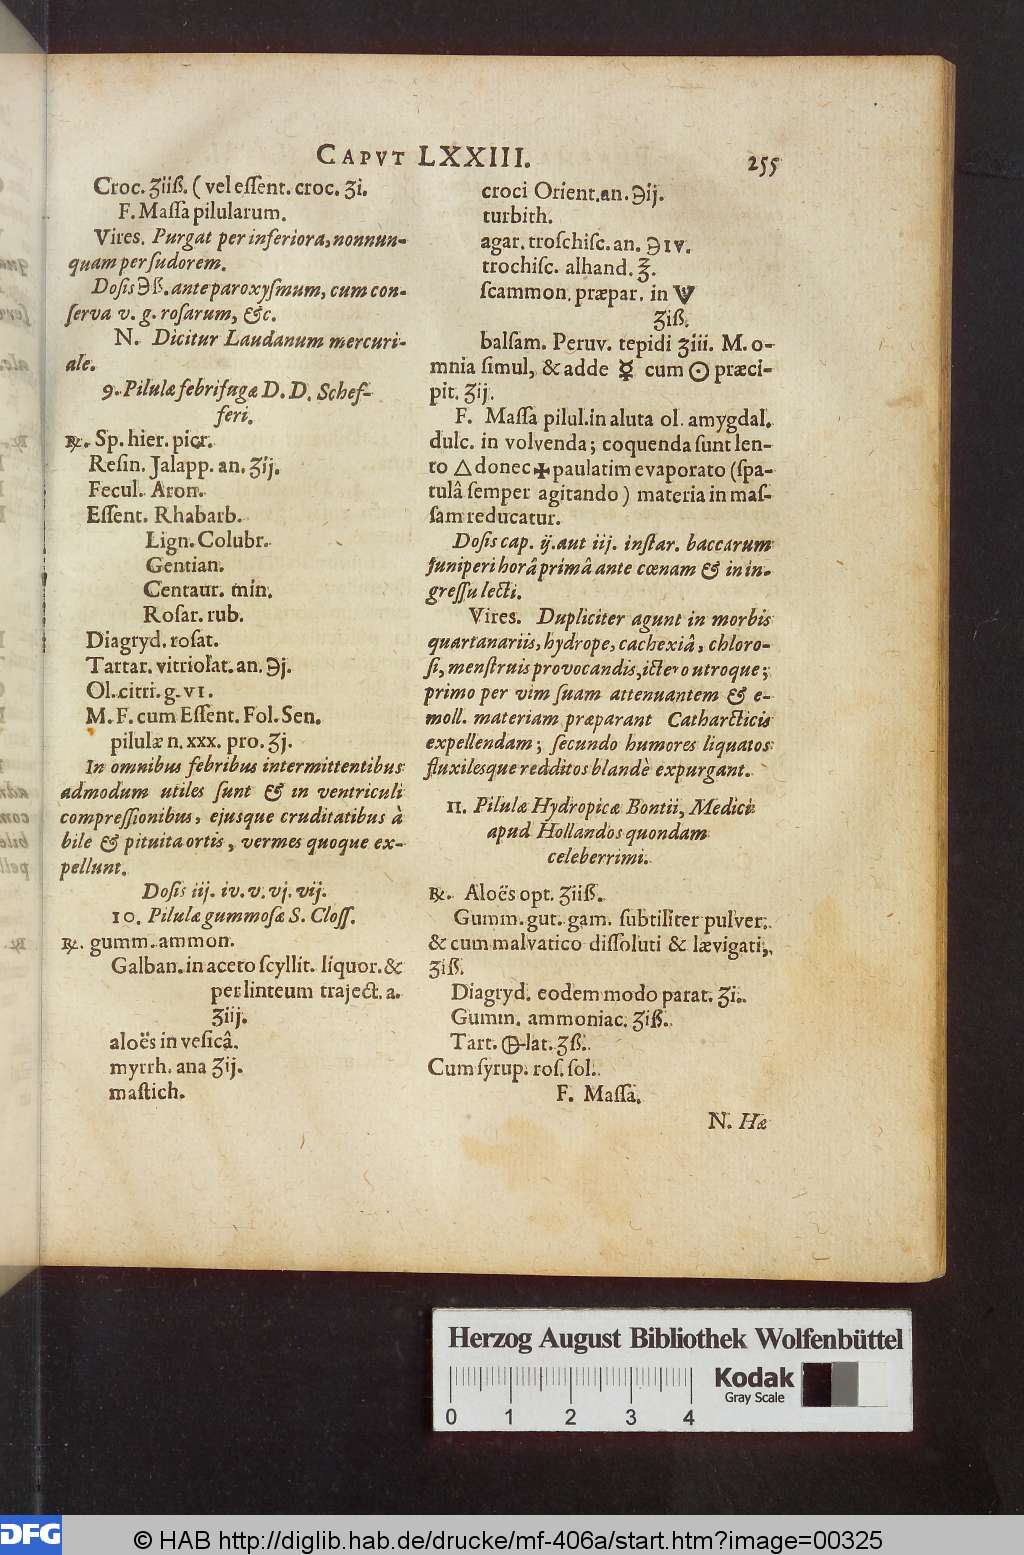 CAPVT LXXIII. 255
Croc. ʒiiß. (vel eſſent. croc. ʒi.
F. Maſſa pilularum.
Vires. Purgat per inferiora, nonnun-
quam per ſudorem.
Doſis ℈ß. ante paroxyſmum, cum con-
ſerva v. g. roſarum, &c.
N. Dicitur Laudanum mercuri-
ale.
9. Pilulæ febrifugæ D. D. Schef-
feri.
℞. Sp. hier. picr.
Reſin. Jalapp. an. ʒij.
Fecul. Aron.
Eſſent. Rhabarb.
Lign. Colubr.
Gentian.
Centaur. min.
Roſar. rub.
Diagryd. roſat.
Tartar. vitriolat. an. ℈j.
Ol. citri. g. VI.
M. F. cum Eſſent. Fol. Sen.
pilulæ n. xxx. pro. ʒj.
In omnibus febribus intermittentibus
admodum utiles ſunt & in ventriculi
compreſſionibus, ejusque cruditatibus à
bile & pituita ortis, vermes quoque ex-
pellunt.
Doſis iij. iv. v. vj. vij.
10. Pilulæ gummoſæ S. Cloſſ.
℞. gumm. ammon.
Galban. in aceto ſcyllit. liquor. &
per linteum traject. a.
ʒiij.
aloës in veſicâ.
myrrh. ana ʒij.
maſtich.
croci Orient. an. ℈ij.
turbith.
agar. troſchiſc. an. ℈IV.
trochiſc. alhand. ʒ.
ſcammon. præpar. in 🜈
ʒiß.
balſam. Peruv. tepidi ʒiii. M. o-
mnia ſimul, & adde ☿ cum ☉ præci-
pit. ʒij.
F. Maſſa pilul. in aluta ol. amygdal.
dulc. in volvenda; coquenda ſunt len-
to △ donec ✠ paulatim evaporato (ſpa-
tulâ ſemper agitando) materia in maſ-
ſam reducatur.
Doſis cap. ij. aut iij. inſtar. baccarum
Juniperi horâ primâ ante cœnam & in in-
greſſu lecti.
Vires. Dupliciter agunt in morbis
quartanariis, hydrope, cachexiâ, chloro-
ſi, menſtruis provocandis, ictero utroque;
primo per vim ſuam attenuantem & e-
moll. materiam præparant Catharcticis
expellendam; ſecundo humores liquatos
fluxilesque redditos blandè expurgant.
11. Pilulæ Hydropicæ Bontii, Medici
apud Hollandos quondam
celeberrimi.
℞. Aloës opt. ʒiiß.
Gumm. gut. gam. ſubtiliter pulver.
& cum malvatico diſſoluti & lævigati,
ʒiß.
Diagryd. eodem modo parat. ʒi.
Gumm. ammoniac. ʒiß.
Tart. 🜖lat. ʒß.
Cum ſyrup. roſ. ſol.
F. Maſſa.
N. Hæ
Herzog August Bibliothek Wolfenbüttel
Kodak
Gray Scale
0 1 2 3 4
DFG
© HAB http://diglib.hab.de/drucke/mf-406a/start.htm?image=00325